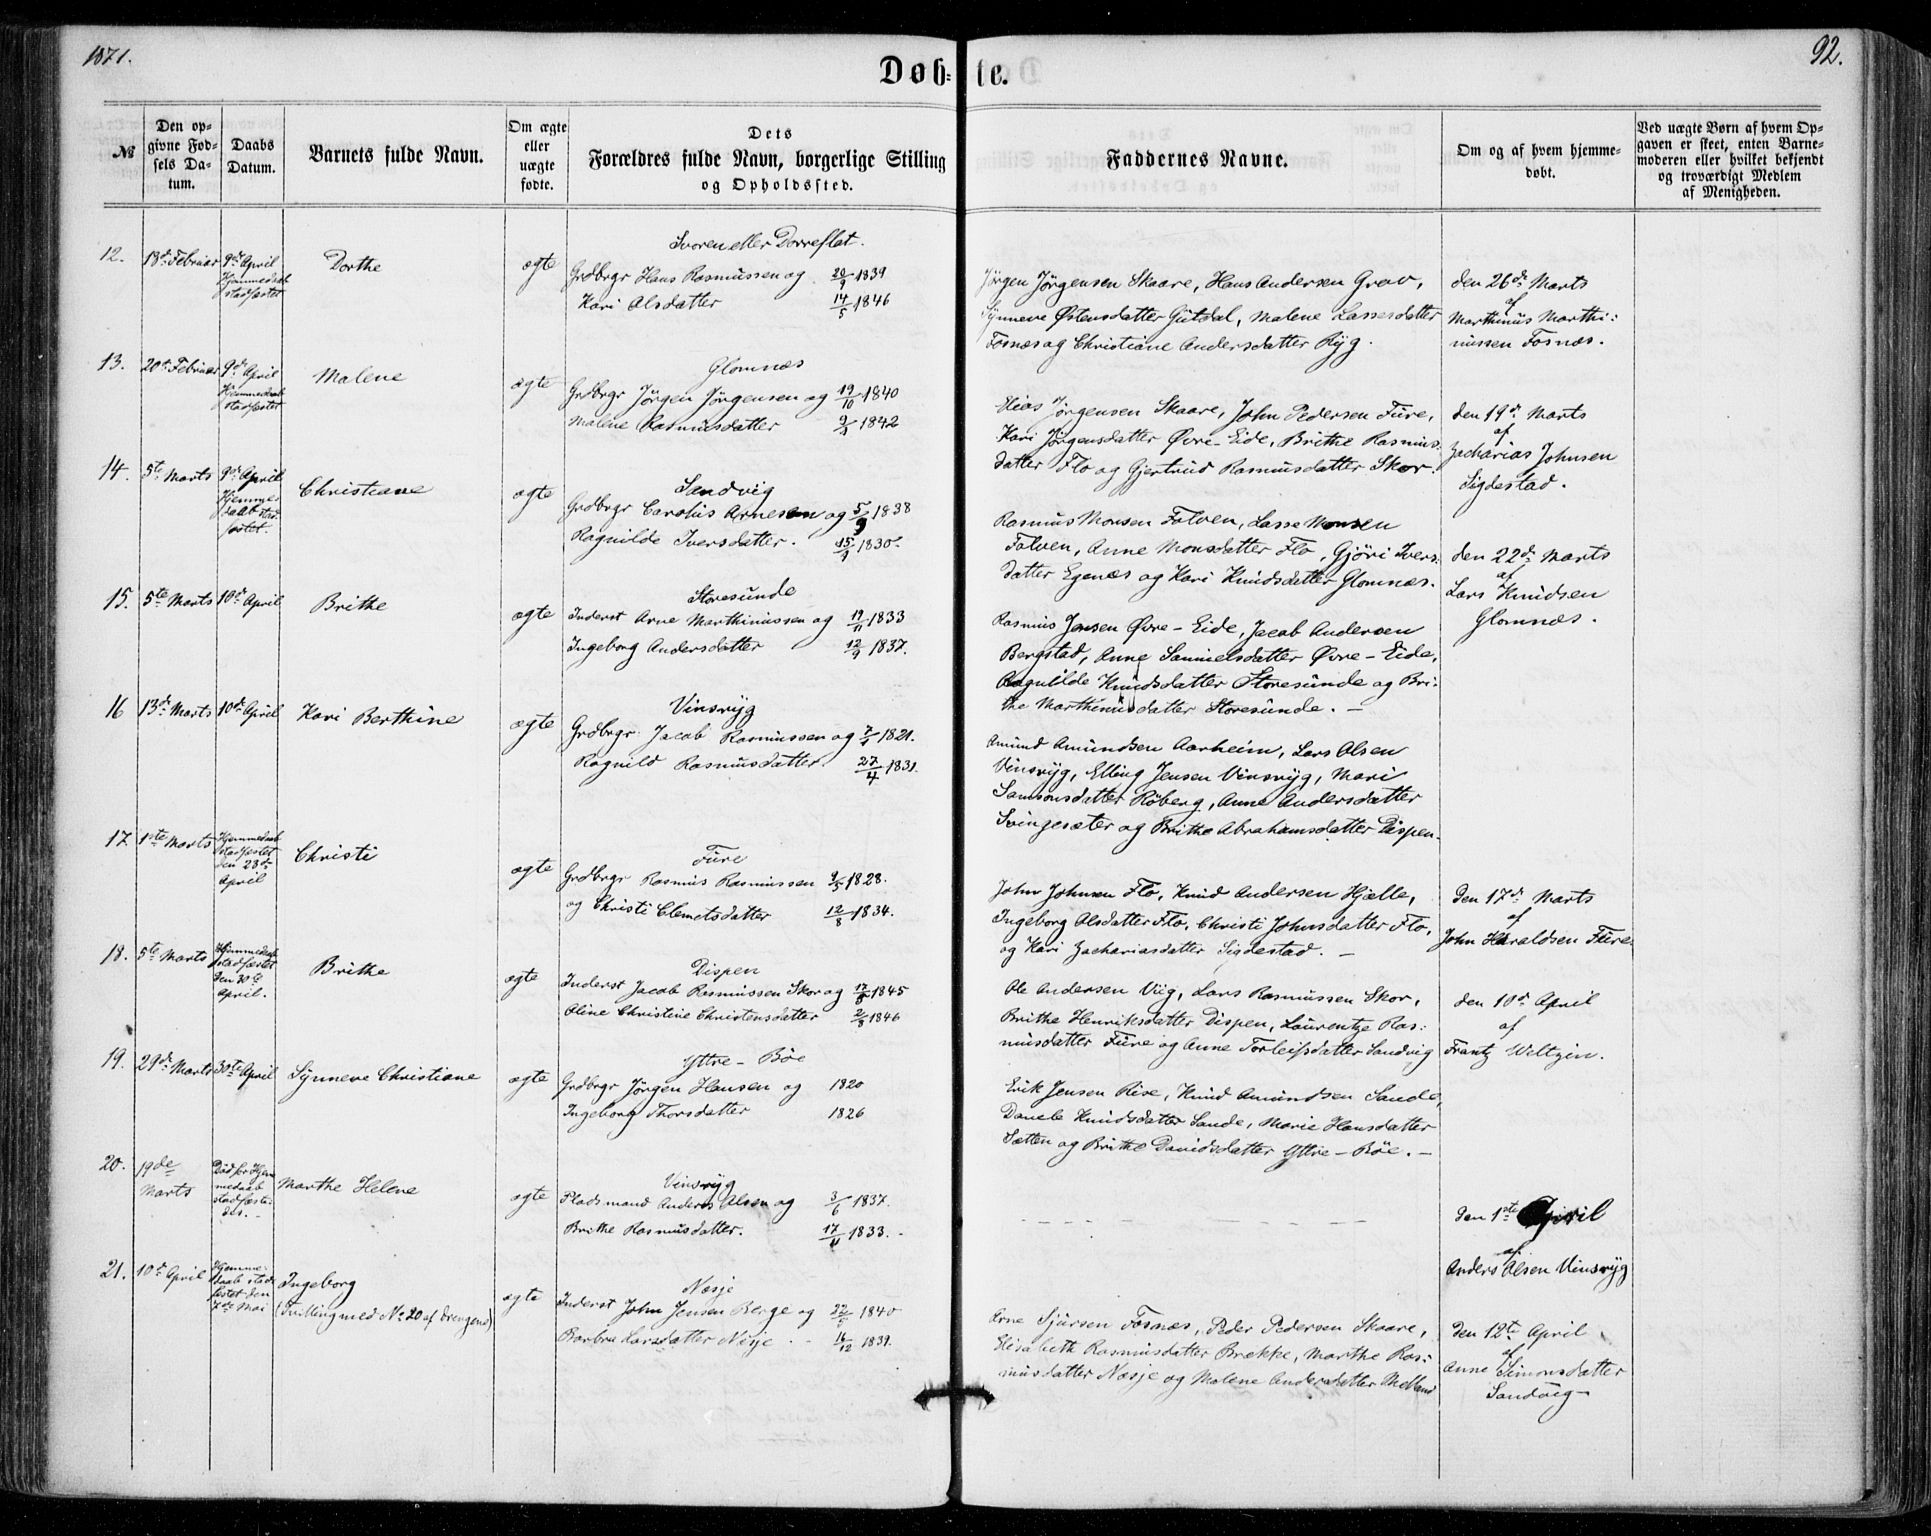 1871.
92.
Døb- te.
№
Den op-
givne Fød-
sels Da-
tum.
Daabs
Datum.
Barnets fulde Navn.
Om ægte
eller
uægte
fødte.
Dets
Forældres fulde Navn, borgerlige Stilling
og Opholdssted.
Faddernes Navne.
Om og af hvem hjemme-
døbt.
Ved uægte Børn af hvem Op-
gaven er skeet, enten Barne-
moderen eller hvilket bekjendt
og troværdigt Medlem
af Menigheden.
12.
18de Februar
9de April
Hjemmedaab
stadfæstet
Dorthe
ægte
Svoren eller Dorreflat.
Grdbrgr Hans Rasmussen og 20/9 1839
Kari Olsdatter 14/5 1846
Jørgen Jørgensen Skaare, Hans Andersen Grov,
Synneve Østensdatter Gutdal, Malene Lassesdatter
Fosnæs og Christiane Andersdatter Ryg.
den 26de Marts
af
Marthinus Marthi:
nussen Fosnæs.
13.
20de Februar
9de April
Hjemmedaab
stadfæstet
Malene
ægte
Glomnæs
Grdbrgr Jørgen Jørgensen og 19/10 1840
Malene Rasmusdatter 1842
Elias Jørgensen Skaare, John Pedersen Fure,
Kari Jørgensdatter Øvre-Eide, Brithe Rasmus-
datter Flo og Gjertrud Rasmusdatter Skor.
den 19de Marts
af
Zacharias Johnsen
Sigdestad.
14.
5te Marts
9de April
Hjemme-
daab stad-
fæstet.
Christiane
ægte
Sandvig
Grdbrgr Carolus Arnesen og 5/9 1838
Ragnilde Iversdatter. 1830.
Rasmus Monsen Folven, Lasse Monsen
Folven, Anne Monsdatter Flo, Gjøri Ivers-
datter Egenæs og Kari Knudsdatter Glomnæs.
den 22de Marts
af
Lars Knudsen
Glomnæs.
15.
5te Marts
10de April
Brithe
ægte
Storesunde
Inderst Arne Marthinussen og 19/11 1833
Ingeborg Andersdatter 12/9 1837.
Rasmus Jensen Øvre-Eide, Jacob Andersen
Bergstad, Anne Samuelsdatter Øvre-Eide,
Ragnilde Knudsdatter Storesunde og Bri-
the Marthinusdatter Storesunde. -
16
13de Marts
10de April
Kari Berthine
ægte
Vinsryg
Grdbrgr. Jacob Rasmussen og 1821.
Ragnild Rasmusdatter 27/4 1831.
Amund Amundsen Aarheim, Lars Olsen
Vinsryg, Elling Jensen Vinsryg, Mari
Samsonsdatter Røberg, Anne Andersdatter
Svingesæter og Brithe Abrahamsdatter Dispen.
17.
1ste Marts
Hjemmedaab
stadfæstet
den 23de
April
Christi
ægte
Fure
Grdbrgr Rasmus Rasmussen 9/5 1828.
og Christi Clemetsdatter 12/8 1834.
John Johnsen Flo, Knud Andersen Hjelle,
Ingeborg Olsdatter Flo, Christi Johnsdatter Flo,
og Kari Zachariasdatter Sigdestad. -
den 17de Marts
af
John Haraldsen Fure
18.
5te Marts
Hjemmedaab
stadfæstet
den 30te
April.
Brithe
ægte
Dispen
Inderst Jacob Rasmussen Skor og 17/8 1845
Oline Christine Christensdatter 2/8 1846
Ole Andersen Viig, Lars Rasmussen Skor,
Brithe Henriksdatter Dispen, Laurentze Ras:
musdatter Fure og Anne Torleifsdatter Sandvig
den 10de April
af
Frantz Weltzin.
19.
29de Marts
30te April
Synneve Christiane
ægte
Yttre-Böe
Grdbrgr Jørgen Hansen og 1820
Ingeborg Thorsdatter 1826
Erik Jensen Rise, Knud Amundsen Sande,
Danele Knudsdatter Sande, Marie Hansdatter
Sætten og Brithe Davidsdatter Yttre-Böe. -
20.
19de
Marts
Død før Hjem-
medaab
stadfæste-
des. -
Marthe Helene
ægte
Vinsryg
Pladsmand Anders Olsen og 3/6 1837.
Brithe Rasmusdatter. 17/11 1833.
den 1ste April
af
Anders Olsen Vinsryg
21.
10de April
Hjemme-
daab stad-
fæstet den
7de Mai
Ingeborg
(Tvilling med No 20 af Drengene)
ægte
Nesje
Inderst John Jensen Berge og 1840
Barbra Larsdatter Nesje 16/12 1839.
Arne Sjursen Fosnæs, Peder Pedersen Skaare,
Elisabeth Rasmusdatter Brække, Marthe Ras:
musdatter Nesje og Malene Andersdatter Melland
den 12te April
af
Anne Simonsdatter
Sandvig